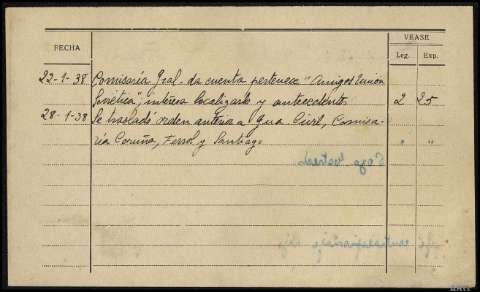 VEASE
FECHA
Leg. Exp.
22-1-38 Comisaría Gral. da cuenta pertenece "Amigos Unión
Soviética", interesa localizarlo y antecedentes. 2 25
28-1-38 Se trasladó orden anterior a Gua. Civil, Comisa-
ría Coruña, Ferrol y Santiago " "